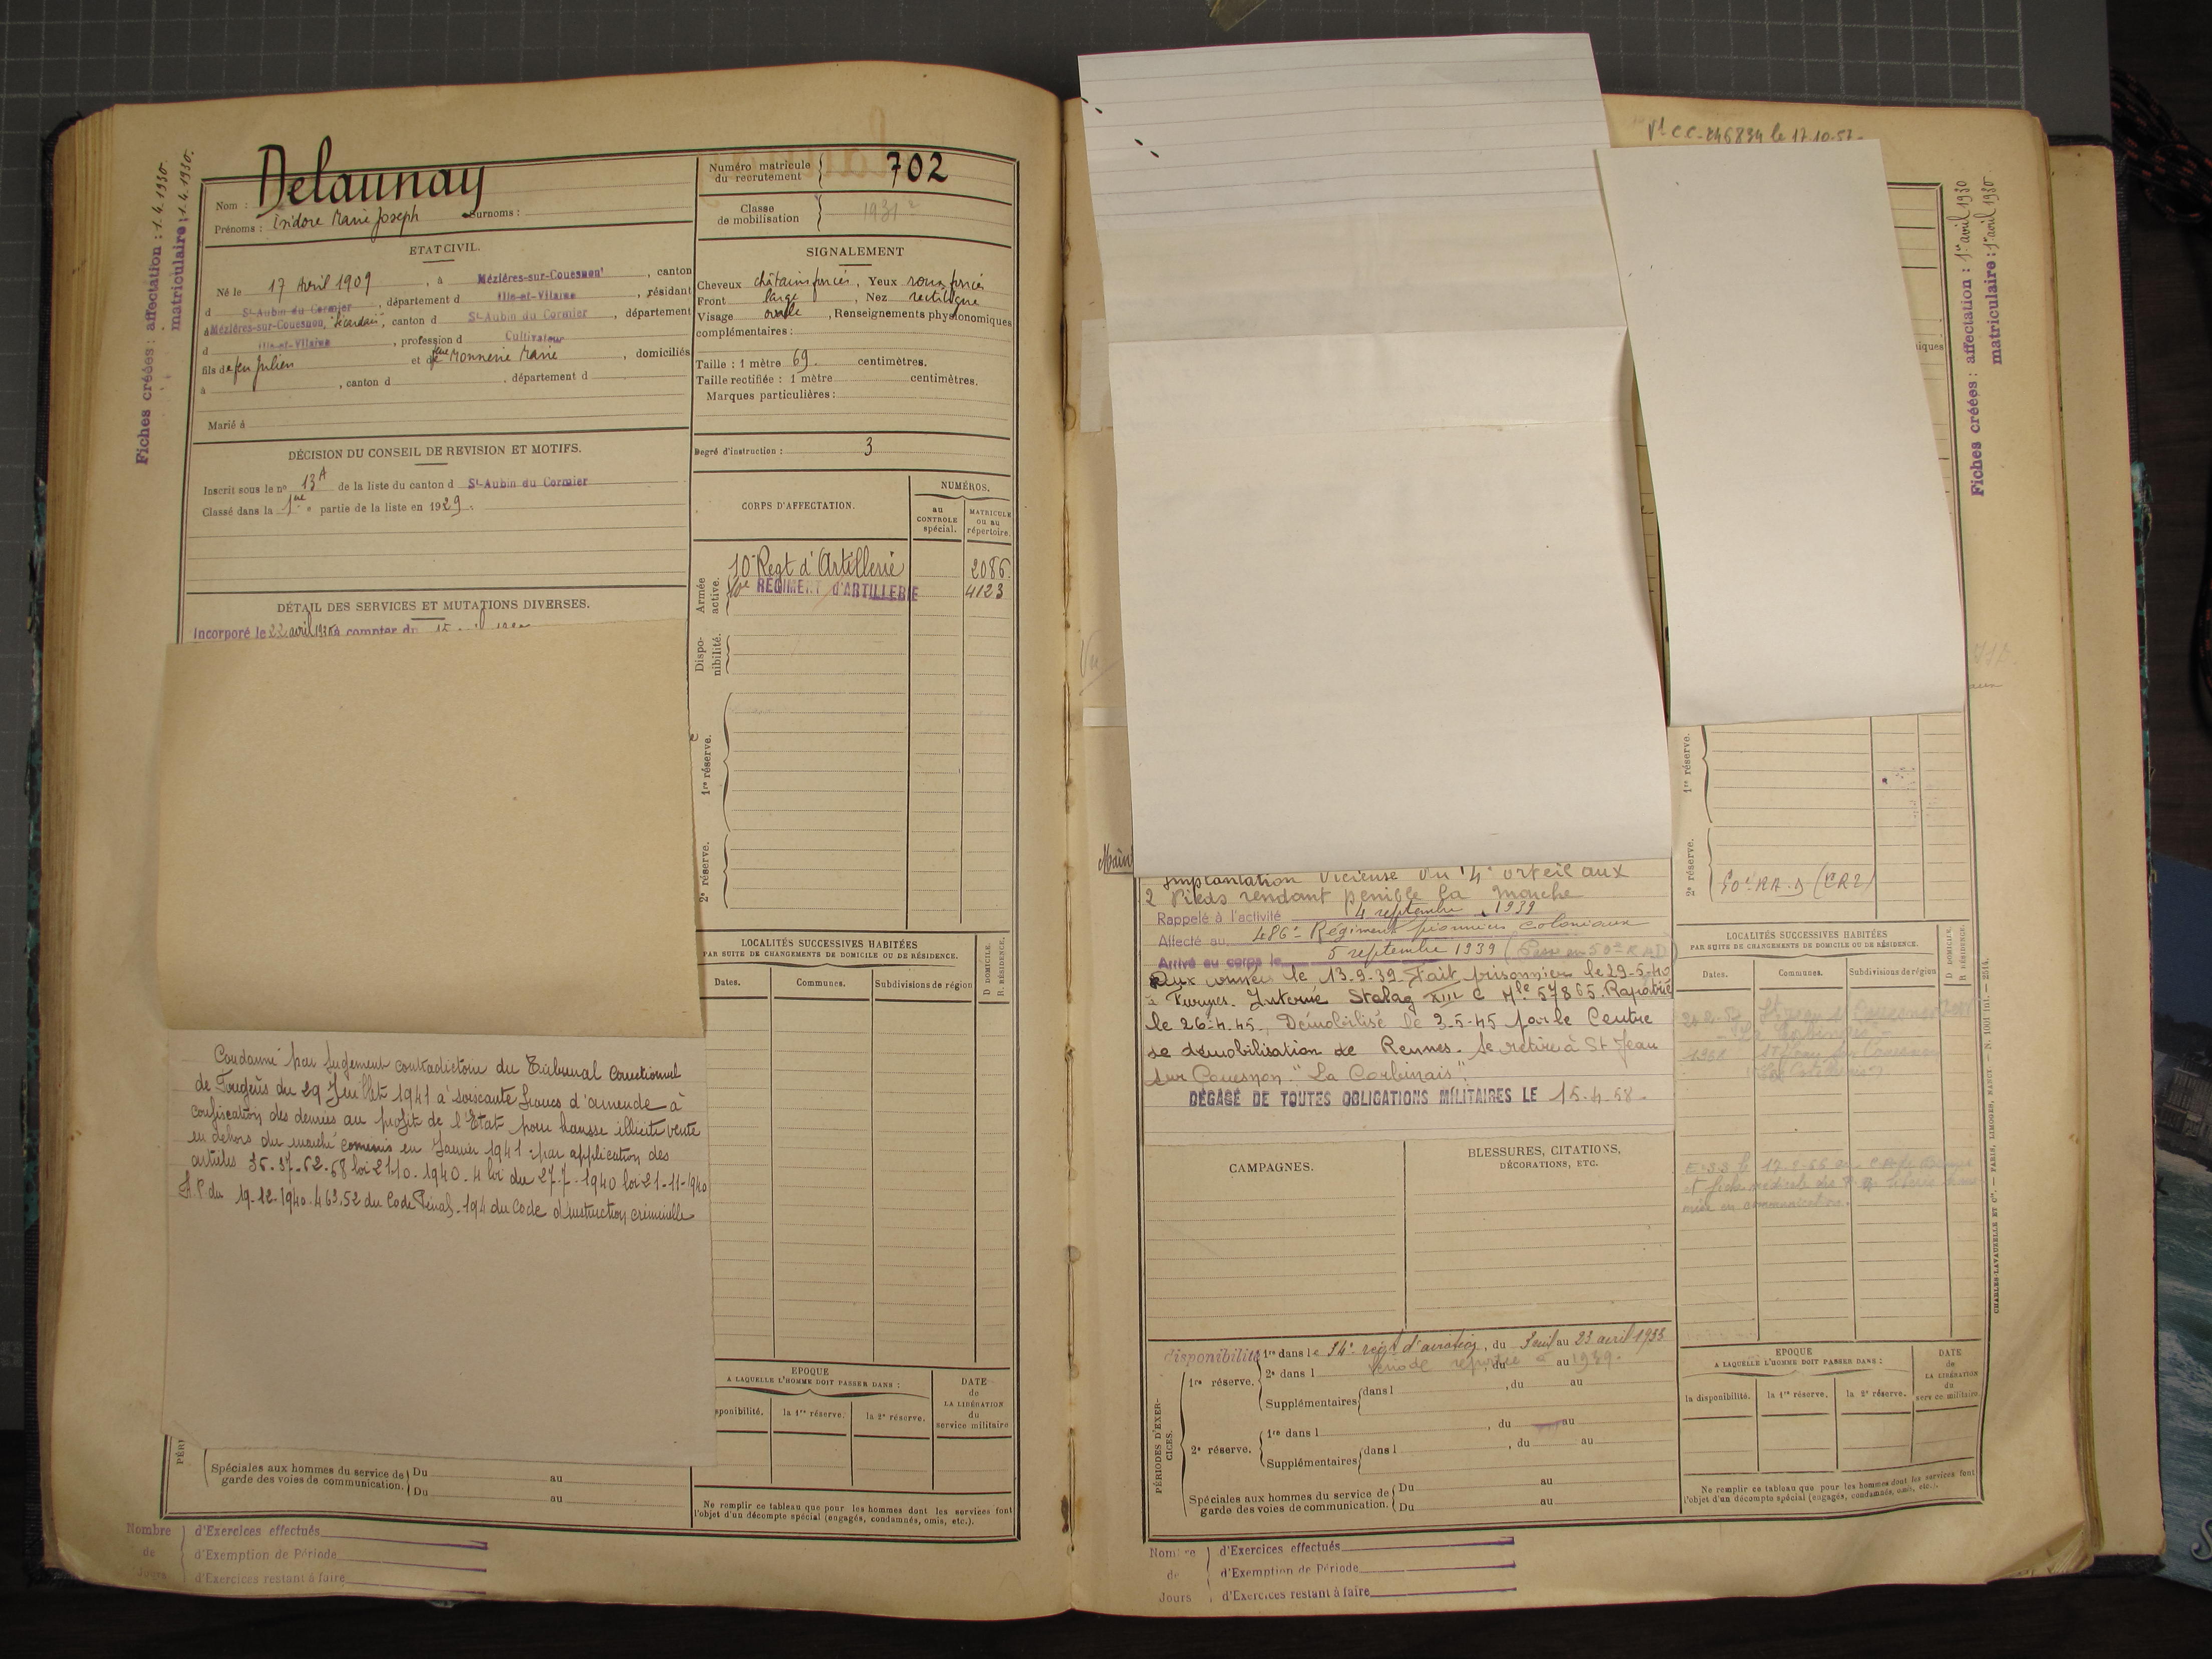 Fiches créées : affectation : 1.4.1930.
matriculaire : 1.4.1930.
Nom : Delaunay
Prénoms : Isidore Marie Joseph Surnoms :
Numéro matricule du recrutement 702
Classe de mobilisation 1931
ETAT CIVIL.
Né le 17 Avril 1909, à Mézières-sur-Couesnon, canton
d St-Aubin du Cormier, département d Ille-et-Vilaine, résidant
à Mézières-sur-Couesnon, canton d St-Aubin du Cormier, département
d Ille-et-Vilaine, profession d Cultivateur
fils de feu Julien et de feue Monnerie Marie, domiciliés
à , canton d , département d
Marié à
SIGNALEMENT
Cheveux châtains foncés, Yeux roux foncés
Front large, Nez rectiligne
Visage ovale, Renseignements physionomiques
complémentaires :
Taille : 1 mètre 69. centimètres.
Taille rectifiée : 1 mètre centimètres.
Marques particulières :
Degré d'instruction : 3
DÉCISION DU CONSEIL DE REVISION ET MOTIFS.
Inscrit sous le nº 13A de la liste du canton d St-Aubin du Cormier
Classé dans la 1ère partie de la liste en 1929.
DÉTAIL DES SERVICES ET MUTATIONS DIVERSES.
Incorporé le 22 avril 1930 à compter du 15
CORPS D'AFFECTATION.
NUMÉROS.
au CONTROLE spécial.
MATRICULE ou au répertoire.
Armée active.
10e Regt d'Artillerie 2086.
10e RÉGIMENT d'ARTILLERIE 4123
Disponibilité.
1re réserve.
2e réserve.
LOCALITÉS SUCCESSIVES HABITÉES
PAR SUITE DE CHANGEMENTS DE DOMICILE OU DE RÉSIDENCE.
Dates. Communes. Subdivisions de région D DOMICILE. R RÉSIDENCE.
Condamné par jugement contradictoire du Tribunal Correctionnel
de Fougères du 29 Juillet 1941 à soixante francs d'amende à
confiscation des denrées au profit de l'Etat pour hausse illicite vente
en dehors du marché commis en Janvier 1941 par application des
articles 36-37-62-68 loi 21.10.1940-4 loi du 27-7-1940 loi 21-11-1940
A.P. du 19-12-1940-463.52 du Code Pénal-194 du Code d'instruction criminelle
EPOQUE
A LAQUELLE L'HOMME DOIT PASSER DANS :
sponibilité. la 1re réserve. la 2e réserve.
DATE de LA LIBÉRATION du service militaire
PÉRI
Spéciales aux hommes du service de garde des voies de communication.
Du au
Du au
Ne remplir ce tableau que pour les hommes dont les services font
l'objet d'un décompte spécial (engagés, condamnés, omis, etc.).
Nombre de Jours
d'Exercices effectués
d'Exemption de Période
d'Exercices restant à faire
Vt CC-246834 le 17.10.57-
Fiches créées : affectation : 1er avril 1930
matriculaire : 1er avril 1930.
iques
Vu
Main
Implantation vicieuse du 4e orteil aux
2 Pieds rendant pénible la marche
Rappelé à l'activité 4 septembre 1939
Affecté au 486e Régiment pionniers coloniaux
Arrivé au corps le 5 septembre 1939 (Passe au 50e RAD)
Aux armées le 13.9.39. Fait prisonnier le 29-5-40
à Furnes. Interné Stalag XIII C Mle 57865. Rapatrié
le 26-4.45. Démobilisé le 3-5-45 par le Centre
de démobilisation de Rennes. Se retire à St Jean
sur Couesnon "La Corbinais"
DÉGAGÉ DE TOUTES OBLIGATIONS MILITAIRES LE 15-4-58-
CAMPAGNES.
BLESSURES, CITATIONS, DÉCORATIONS, ETC.
1re réserve.
2e réserve.
50e RA.D (CR2)
LOCALITÉS SUCCESSIVES HABITÉES
PAR SUITE DE CHANGEMENTS DE DOMICILE OU DE RÉSIDENCE.
Dates. Communes. Subdivisions de région D DOMICILE. R RÉSIDENCE.
PÉRIODES D'EXERCICES.
disponibilité
1re réserve.
1re dans le 34e régt d'aviation, du 3 avril au 23 avril 1933
2e dans l période reportée à au 1939.
Supplémentaires dans l , du au
2e réserve.
1re dans l , du au
Supplémentaires dans l , du au
Spéciales aux hommes du service de garde des voies de communication.
Du au
Du au
EPOQUE
A LAQUELLE L'HOMME DOIT PASSER DANS :
la disponibilité. la 1re réserve. la 2e réserve.
DATE de LA LIBÉRATION du service militaire.
Ne remplir ce tableau que pour les hommes dont les services font
l'objet d'un décompte spécial (engagés, condamnés, omis, etc.).
Nombre de Jours
d'Exercices effectués
d'Exemption de Période
d'Exercices restant à faire
CHARLES-LAVAUZELLE ET Cie. — PARIS, LIMOGES, NANCY.